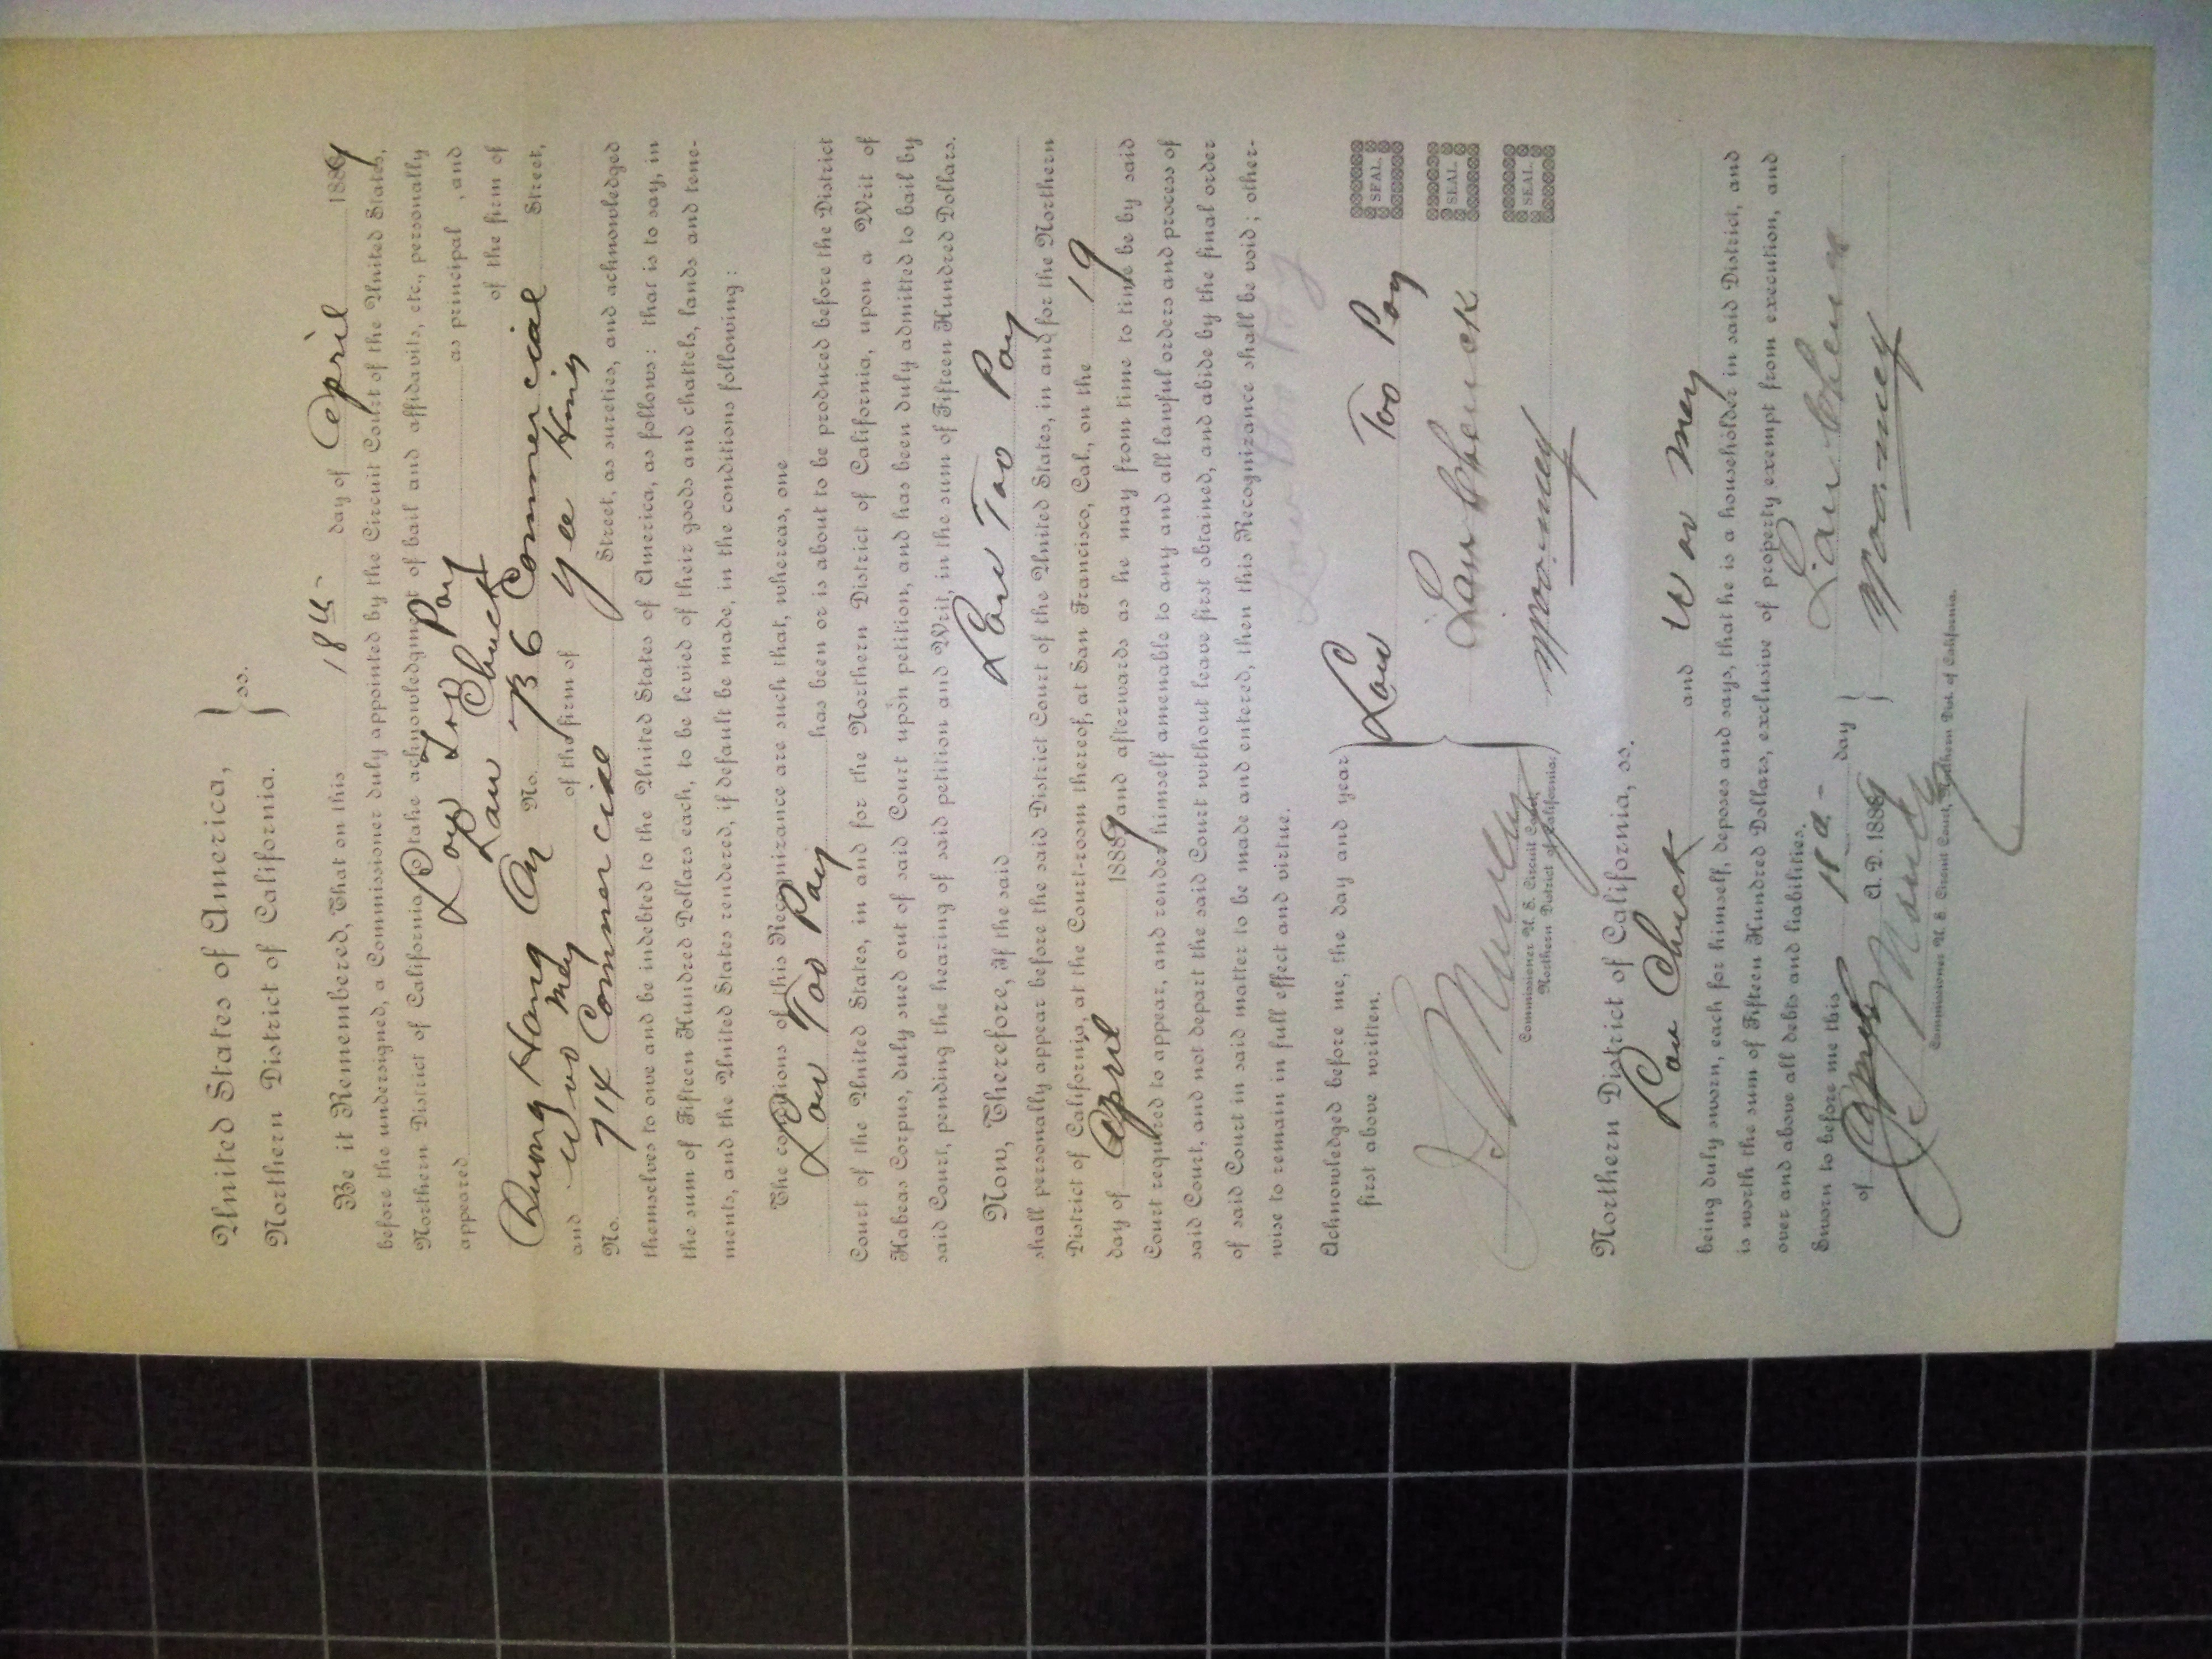 United States of America,
Northern District of California. } ss.
Be it Remembered, That on this 18th day of April 1889
before the undersigned, a Commissioner duly appointed by the Circuit Court of the United States,
Northern District of California to take acknowledgment of bail and affidavits, etc., personally
appeared Low Too Pay as principal, and
Law Chuck of the firm of
Quong Hong On No. 736 Commercial Street,
and Woo Mey of the firm of Yee Hing
No. 714 Commercial Street, as sureties, and acknowledged
themselves to owe and be indebted to the United States of America, as follows: that is to say, in
the sum of Fifteen Hundred Dollars each, to be levied of their goods and chattels, lands and tene-
ments, and the United States rendered, if default be made, in the conditions following:
The conditions of this Recognizance are such that, whereas, one
Low Too Pay has been or is about to be produced before the District
Court of the United States, in and for the Northern District of California, upon a Writ of
Habeas Corpus, duly sued out of said Court upon petition, and has been duly admitted to bail by
said Court, pending the hearing of said petition and Writ, in the sum of Fifteen Hundred Dollars.
Now, Therefore, If the said Low Too Pay
shall personally appear before the said District Court of the United States, in and for the Northern
District of California, at the Courtroom thereof, at San Francisco, Cal., on the 19
day of April 1889 and afterwards as he may from time to time be by said
Court required to appear, and render himself amenable to any and all lawful orders and process of
said Court, and not depart the said Court without leave first obtained, and abide by the final order
of said Court in said matter to be made and entered, then this Recognizance shall be void; other-
wise to remain in full effect and virtue.
Acknowledged before me, the day and year
first above written.
Low Too Pay SEAL.
Lau Chuck SEAL.
Woo mey SEAL.
Commissioner U. S. Circuit Court,
Northern District of California.
Northern District of California, ss.
Lou Chuck and Woo Mey
being duly sworn, each for himself, deposes and says, that he is a householder in said District, and
is worth the sum of Fifteen Hundred Dollars, exclusive of property exempt from execution, and
over and above all debts and liabilities.
Sworn to before me this 18th day
of April A. D. 1889
Lau Chuck
Woo mey
Commissioner U. S. Circuit Court, Northern Dist. of California.